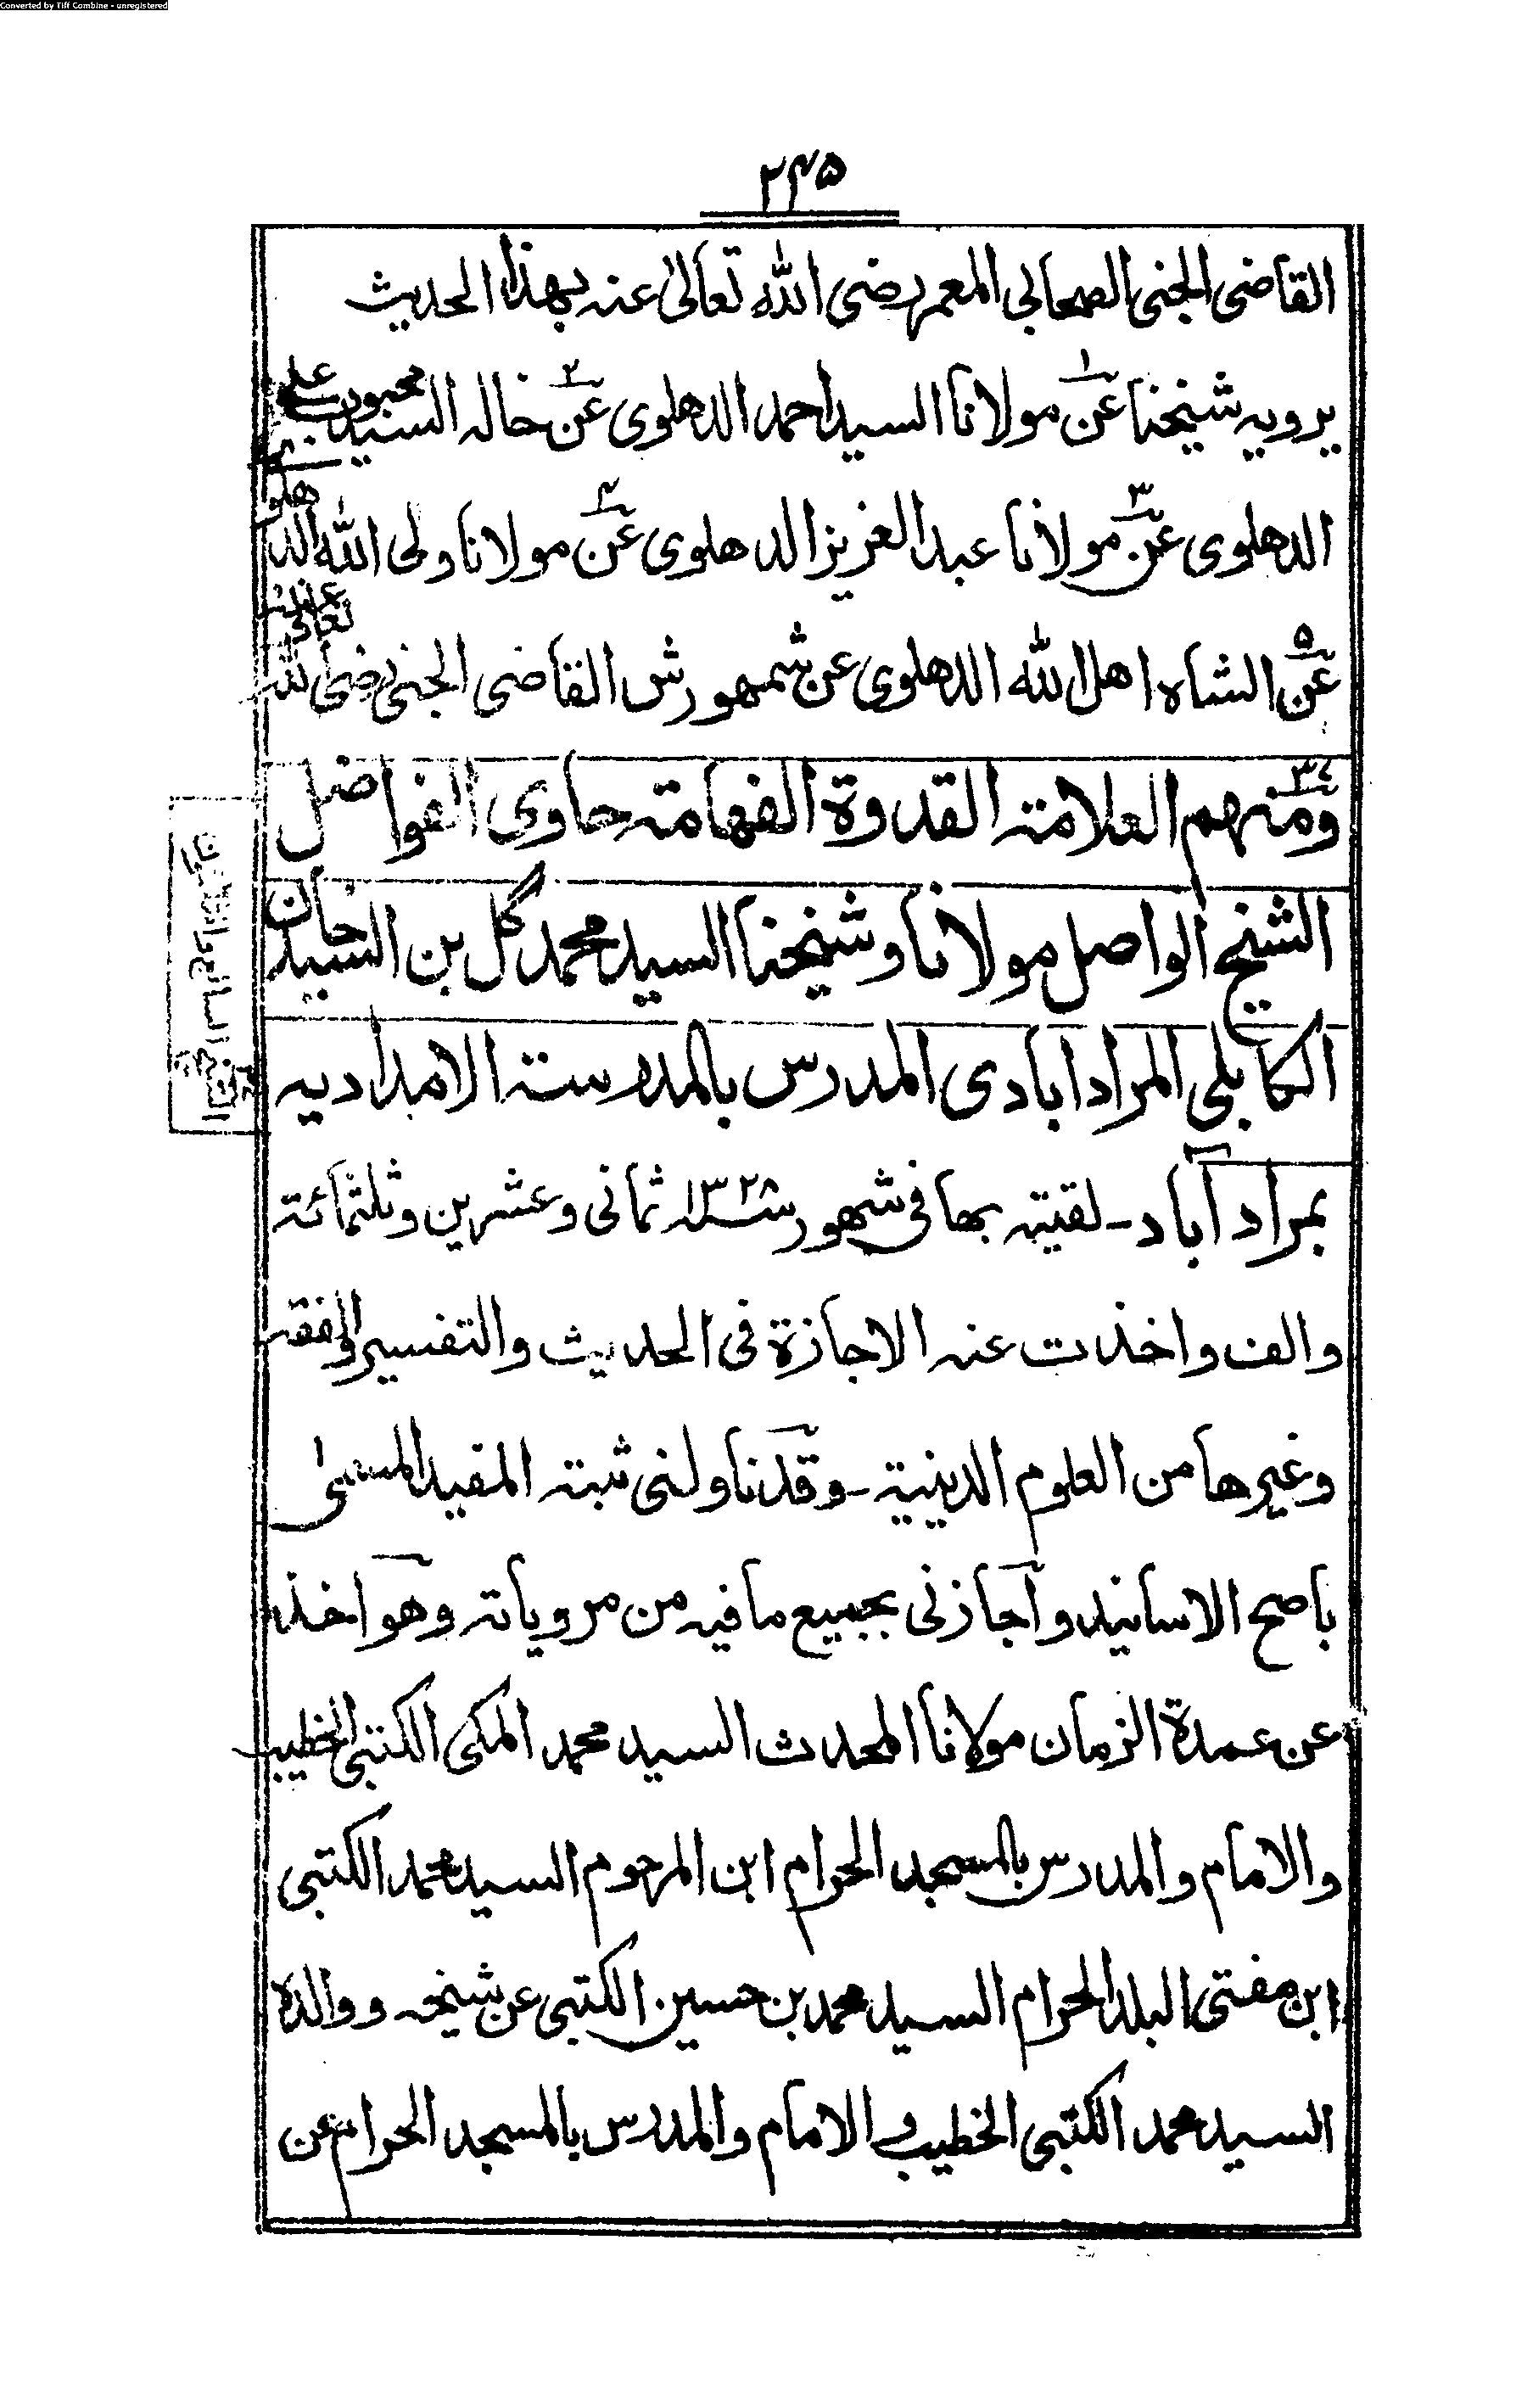 Converted by Tiff Combine - unregistered
۲۴۵
القاضی الجنی الصحابی المعمر رضی اللہ تعالیٰ عنہ بھذا الحدیث
یرویہ شیخنا عن۱ مولانا السید احمد الدھلوی عن۲ خالہ السید محبوب علی
الدھلوی عن۳ مولانا عبد العزیز الدھلوی عن۴ مولانا ولی اللہ الدھلوی
عن۵ الشاہ اھل اللہ الدھلوی عن شمھورش القاضی الجنی رضی اللہ تعالیٰ عنہ
۳۷ ومنھم العلامۃ القدوۃ الفھامۃ حاوی الفواضل
الشیخ الواصل مولانا وشیخنا السید محمد گل بن السید خان
الکابلی المرادابادی المدرس بالمدرسۃ الامدادیہ
بمراد آباد - لقیتہ بھا فی شھور سنہ ۱۳۲۸ ثمانی وعشرین وثلثمائۃ
والف واخذت عنہ الاجازۃ فی الحدیث والتفسیر والفقہ
وغیرھا من العلوم الدینیۃ - وقد ناولنی ثبتہ المفید المسمیٰ
باصح الاسانید واجازنی بجمیع ما فیہ من مرویاتہ وھو اخذ
عن عمدۃ الزمان مولانا المحدث السید محمد المکی الکتبی الخطیب
والامام والمدرس بالمسجد الحرام ابن المرحوم السید محمد الکتبی
ابن مفتی البلد الحرام السید محمد بن حسین الکتبی عن شیخہ ووالدہ
السید محمد الکتبی الخطیب والامام والمدرس بالمسجد الحرام عن
الشیخ السابع والثلاثون ۳۷